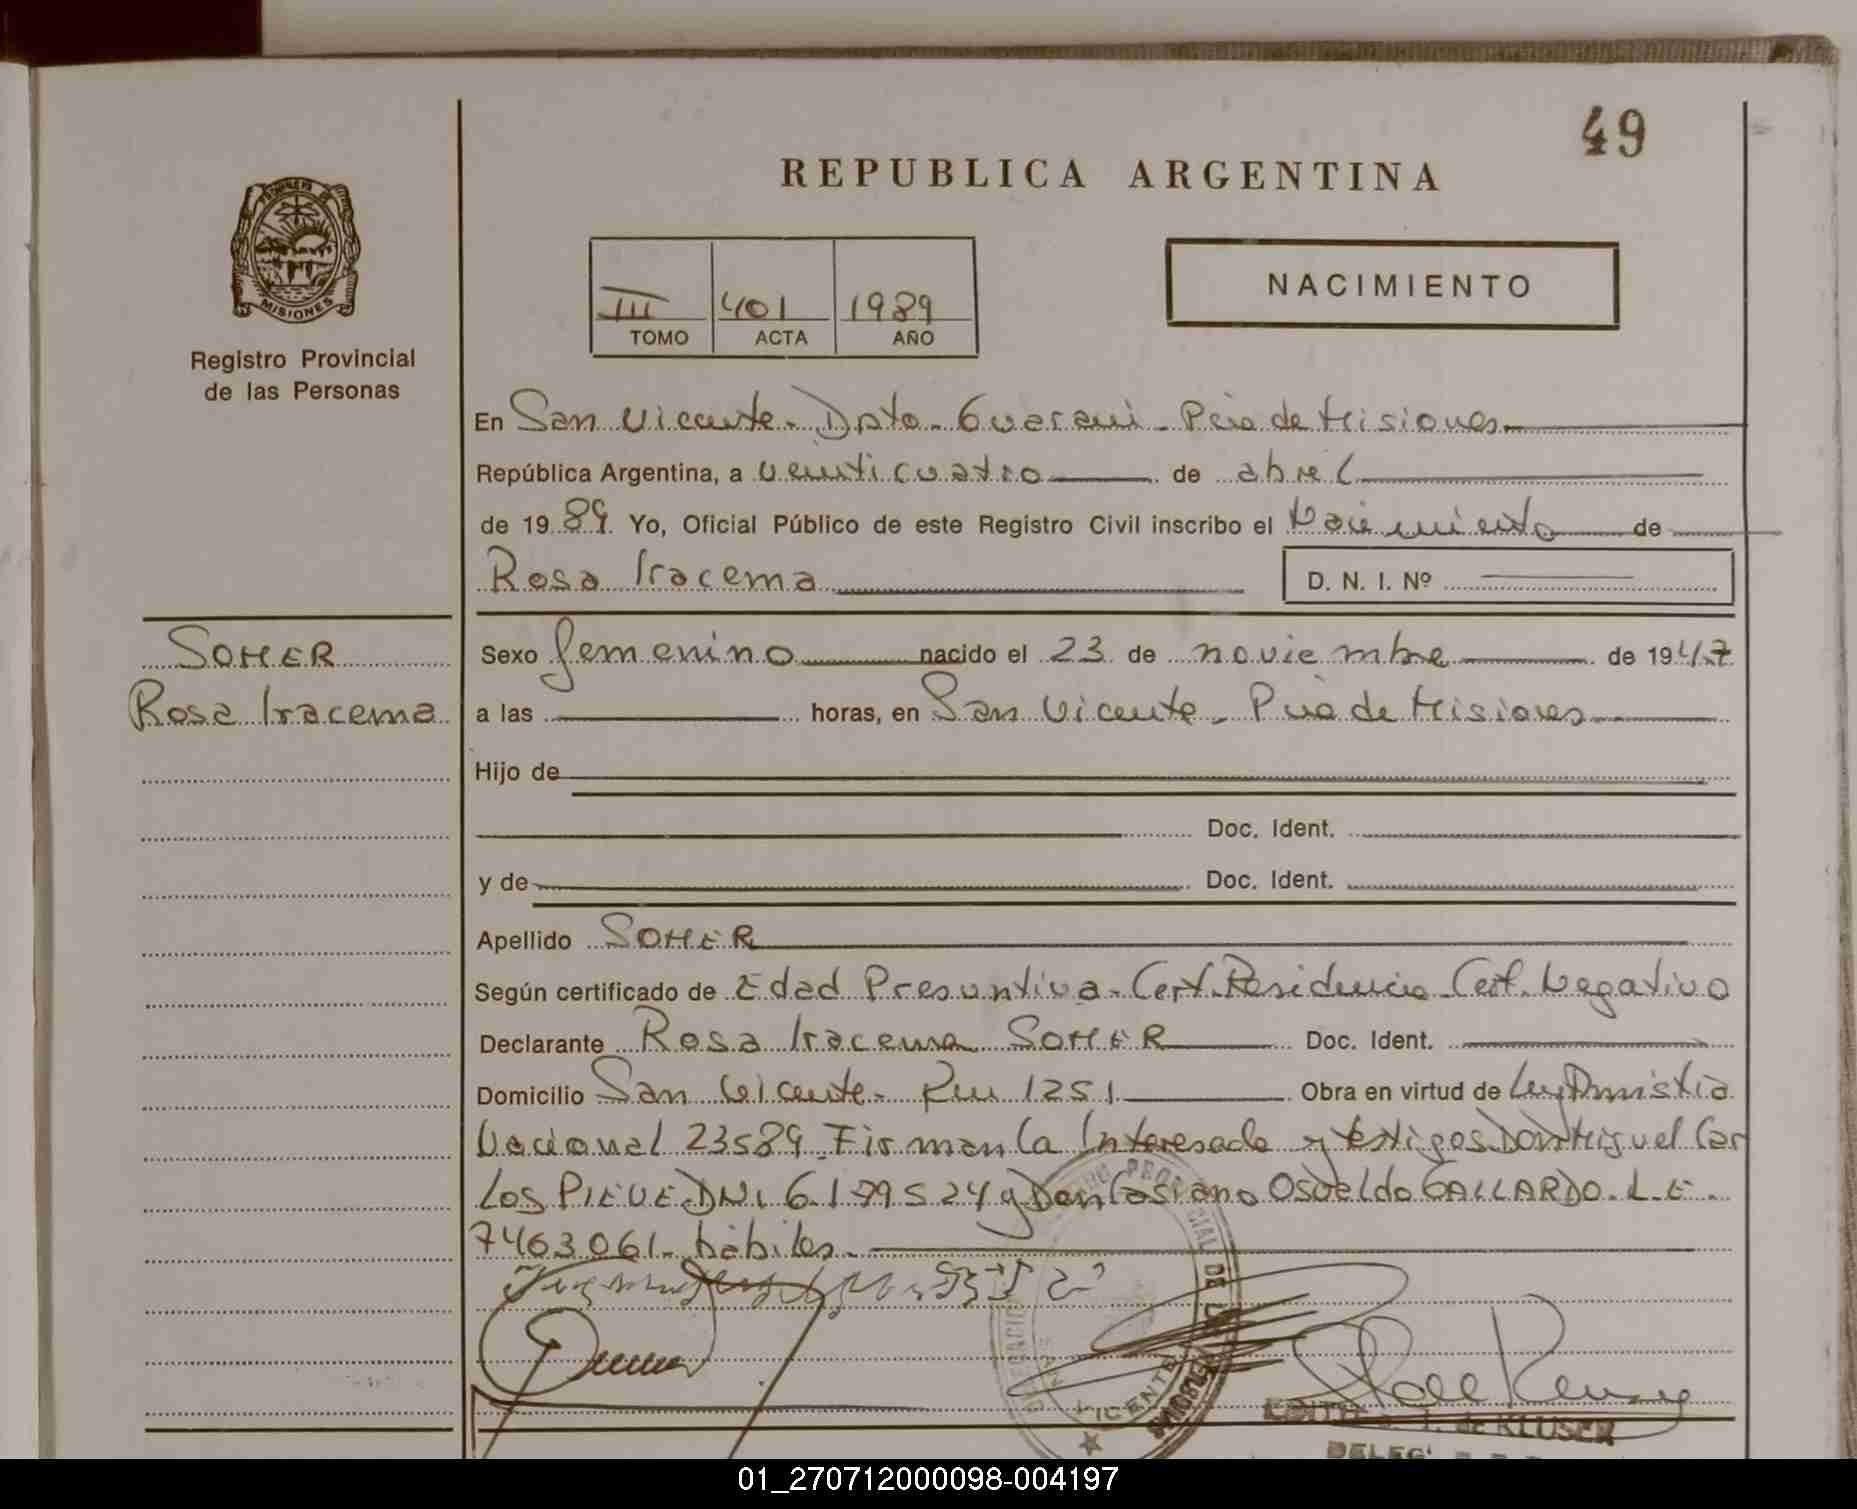 49
REPUBLICA ARGENTINA
PROVINCIA DE
MISIONES
Registro Provincial
de las Personas
III 401 1989
TOMO ACTA AÑO
NACIMIENTO
En San Vicente - Dpto - Guarani - Pcia de Misiones
República Argentina, a veinticuatro de abril
de 1989. Yo, Oficial Público de este Registro Civil inscribo el Nacimiento de
Rosa Iracema D. N. I. Nº
SOMER
Rosa Iracema
Sexo femenino nacido el 23 de noviembre de 1947
a las horas, en San Vicente - Pcia de Misiones
Hijo de
Doc. Ident.
y de Doc. Ident.
Apellido SOMER
Según certificado de Edad Presuntiva - Cert. Residencia - Cert. Negativo
Declarante Rosa Iracema SOMER Doc. Ident.
Domicilio San Vicente - Km 1251 Obra en virtud de Ley Amnistia
Nacional 23589. Firman la Interesada y testigos Don Miguel Car
los PIEVE DNI 6.179524 y Don Casiano Osvaldo GALLARDO. L.E.
7463061 - hábiles -
VICENTE
MISIONES
de KLUSER
01_270712000098-004197